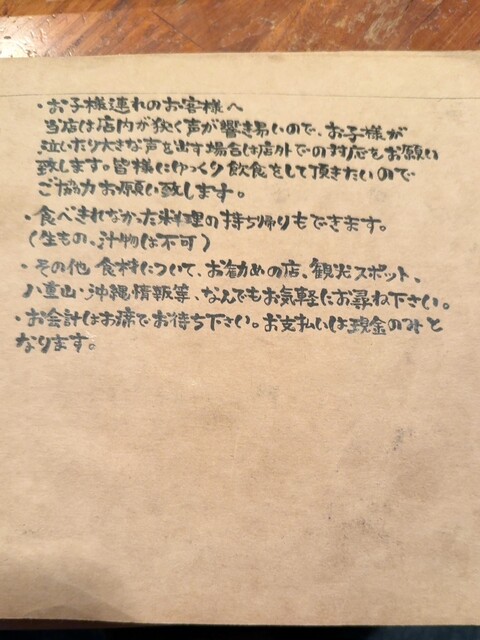 ・お子様連れのお客様へ
当店は店内が狭く声が響き易いので、お子様が
泣いたり大きな声を出す場合は店外での対応をお願い
致します。皆様にゆっくり飲食をして頂きたいので
ご協力お願い致します。
・食べきれなかった料理の持ち帰りもできます。
(生もの、汁物は不可)
・その他 食材について、お勧めの店、観光スポット、
八重山・沖縄情報等、なんでもお気軽にお尋ね下さい。
・お会計はお席でお待ち下さい。お支払いは現金のみと
なります。